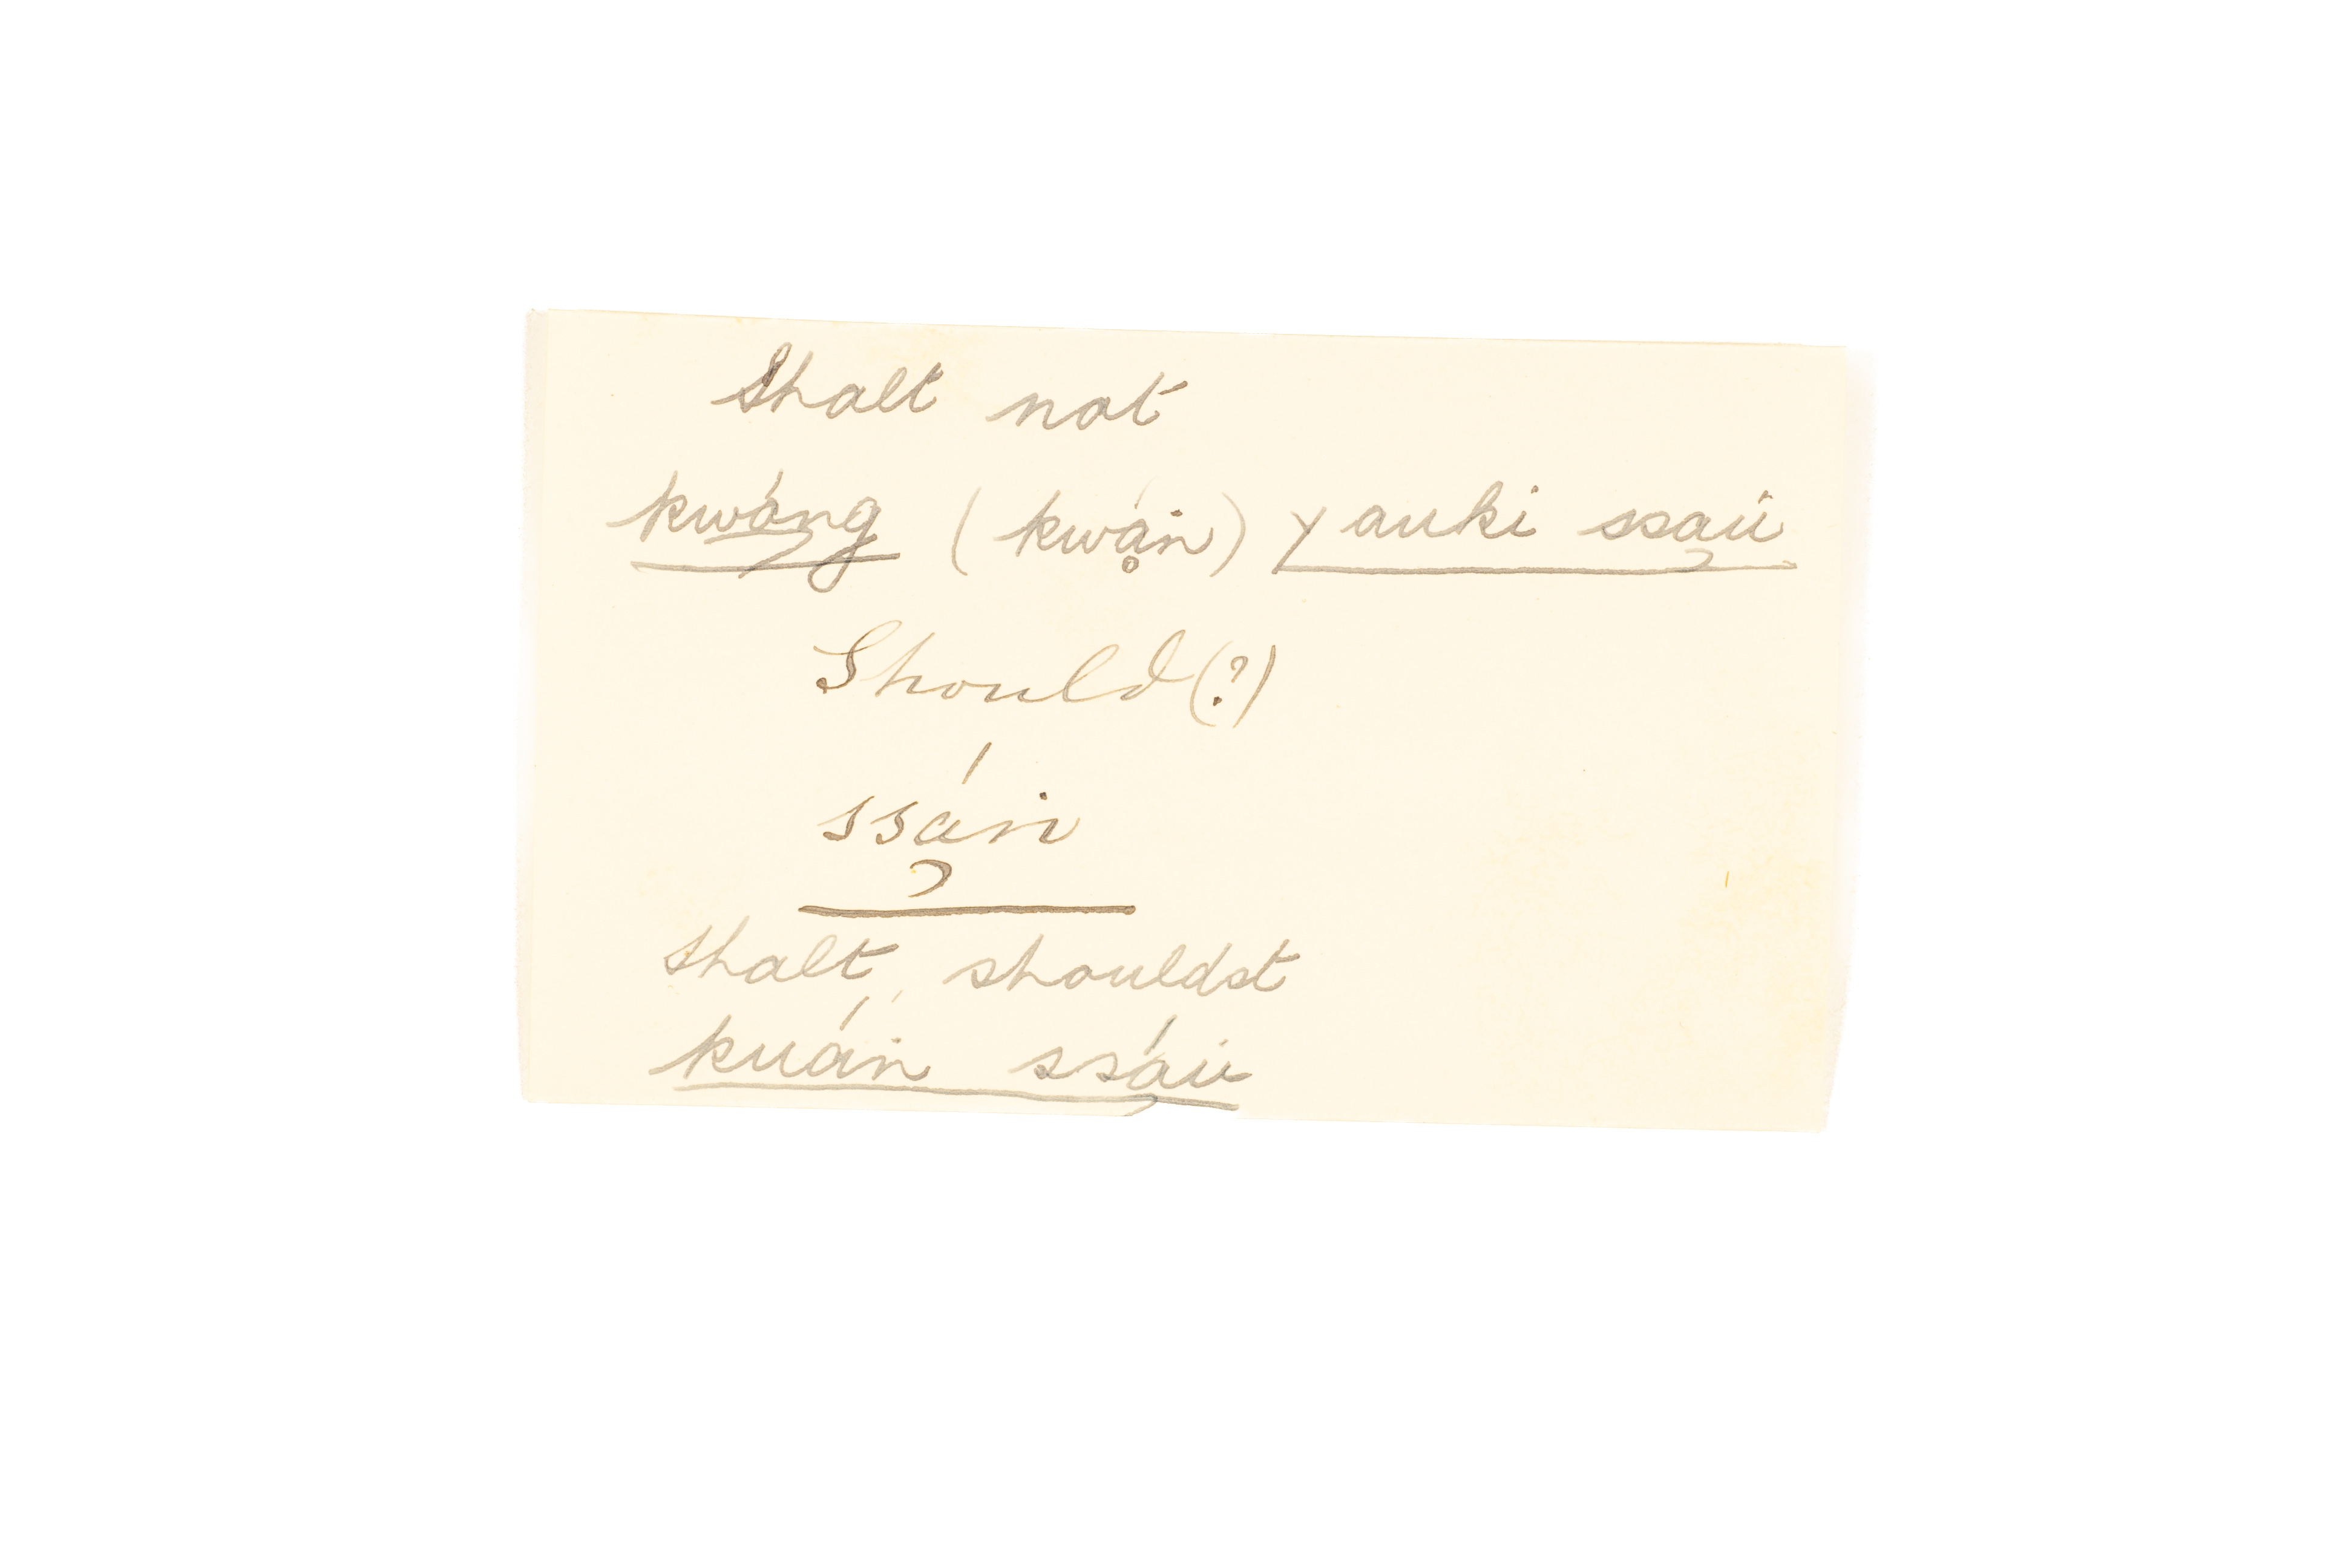 Shalt not
kwáng (kwạ́ṅ) yauki ssaú
Should(?)
ssáṅ
Shalt, shouldst
kuáṅ ssáú